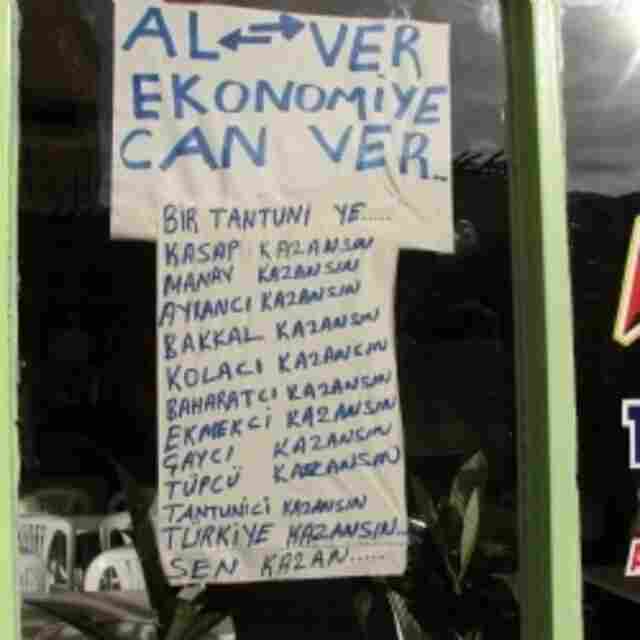 AL ↔ VER
EKONOMİYE
CAN VER..
BIR TANTUNI YE.....
KASAP KAZANSIN
MANAV KAZANSIN
AYRANCI KAZANSIN
BAKKAL KAZANSIN
KOLACI KAZANSIN
BAHARATCI KAZANSIN
EKMEKCİ KAZANSIN
ÇAYCI KAZANSIN
TÜPCÜ KAZANSIN
TANTUNİCİ KAZANSIN
TÜRKİYE KAZANSIN...
SEN KAZAN.....